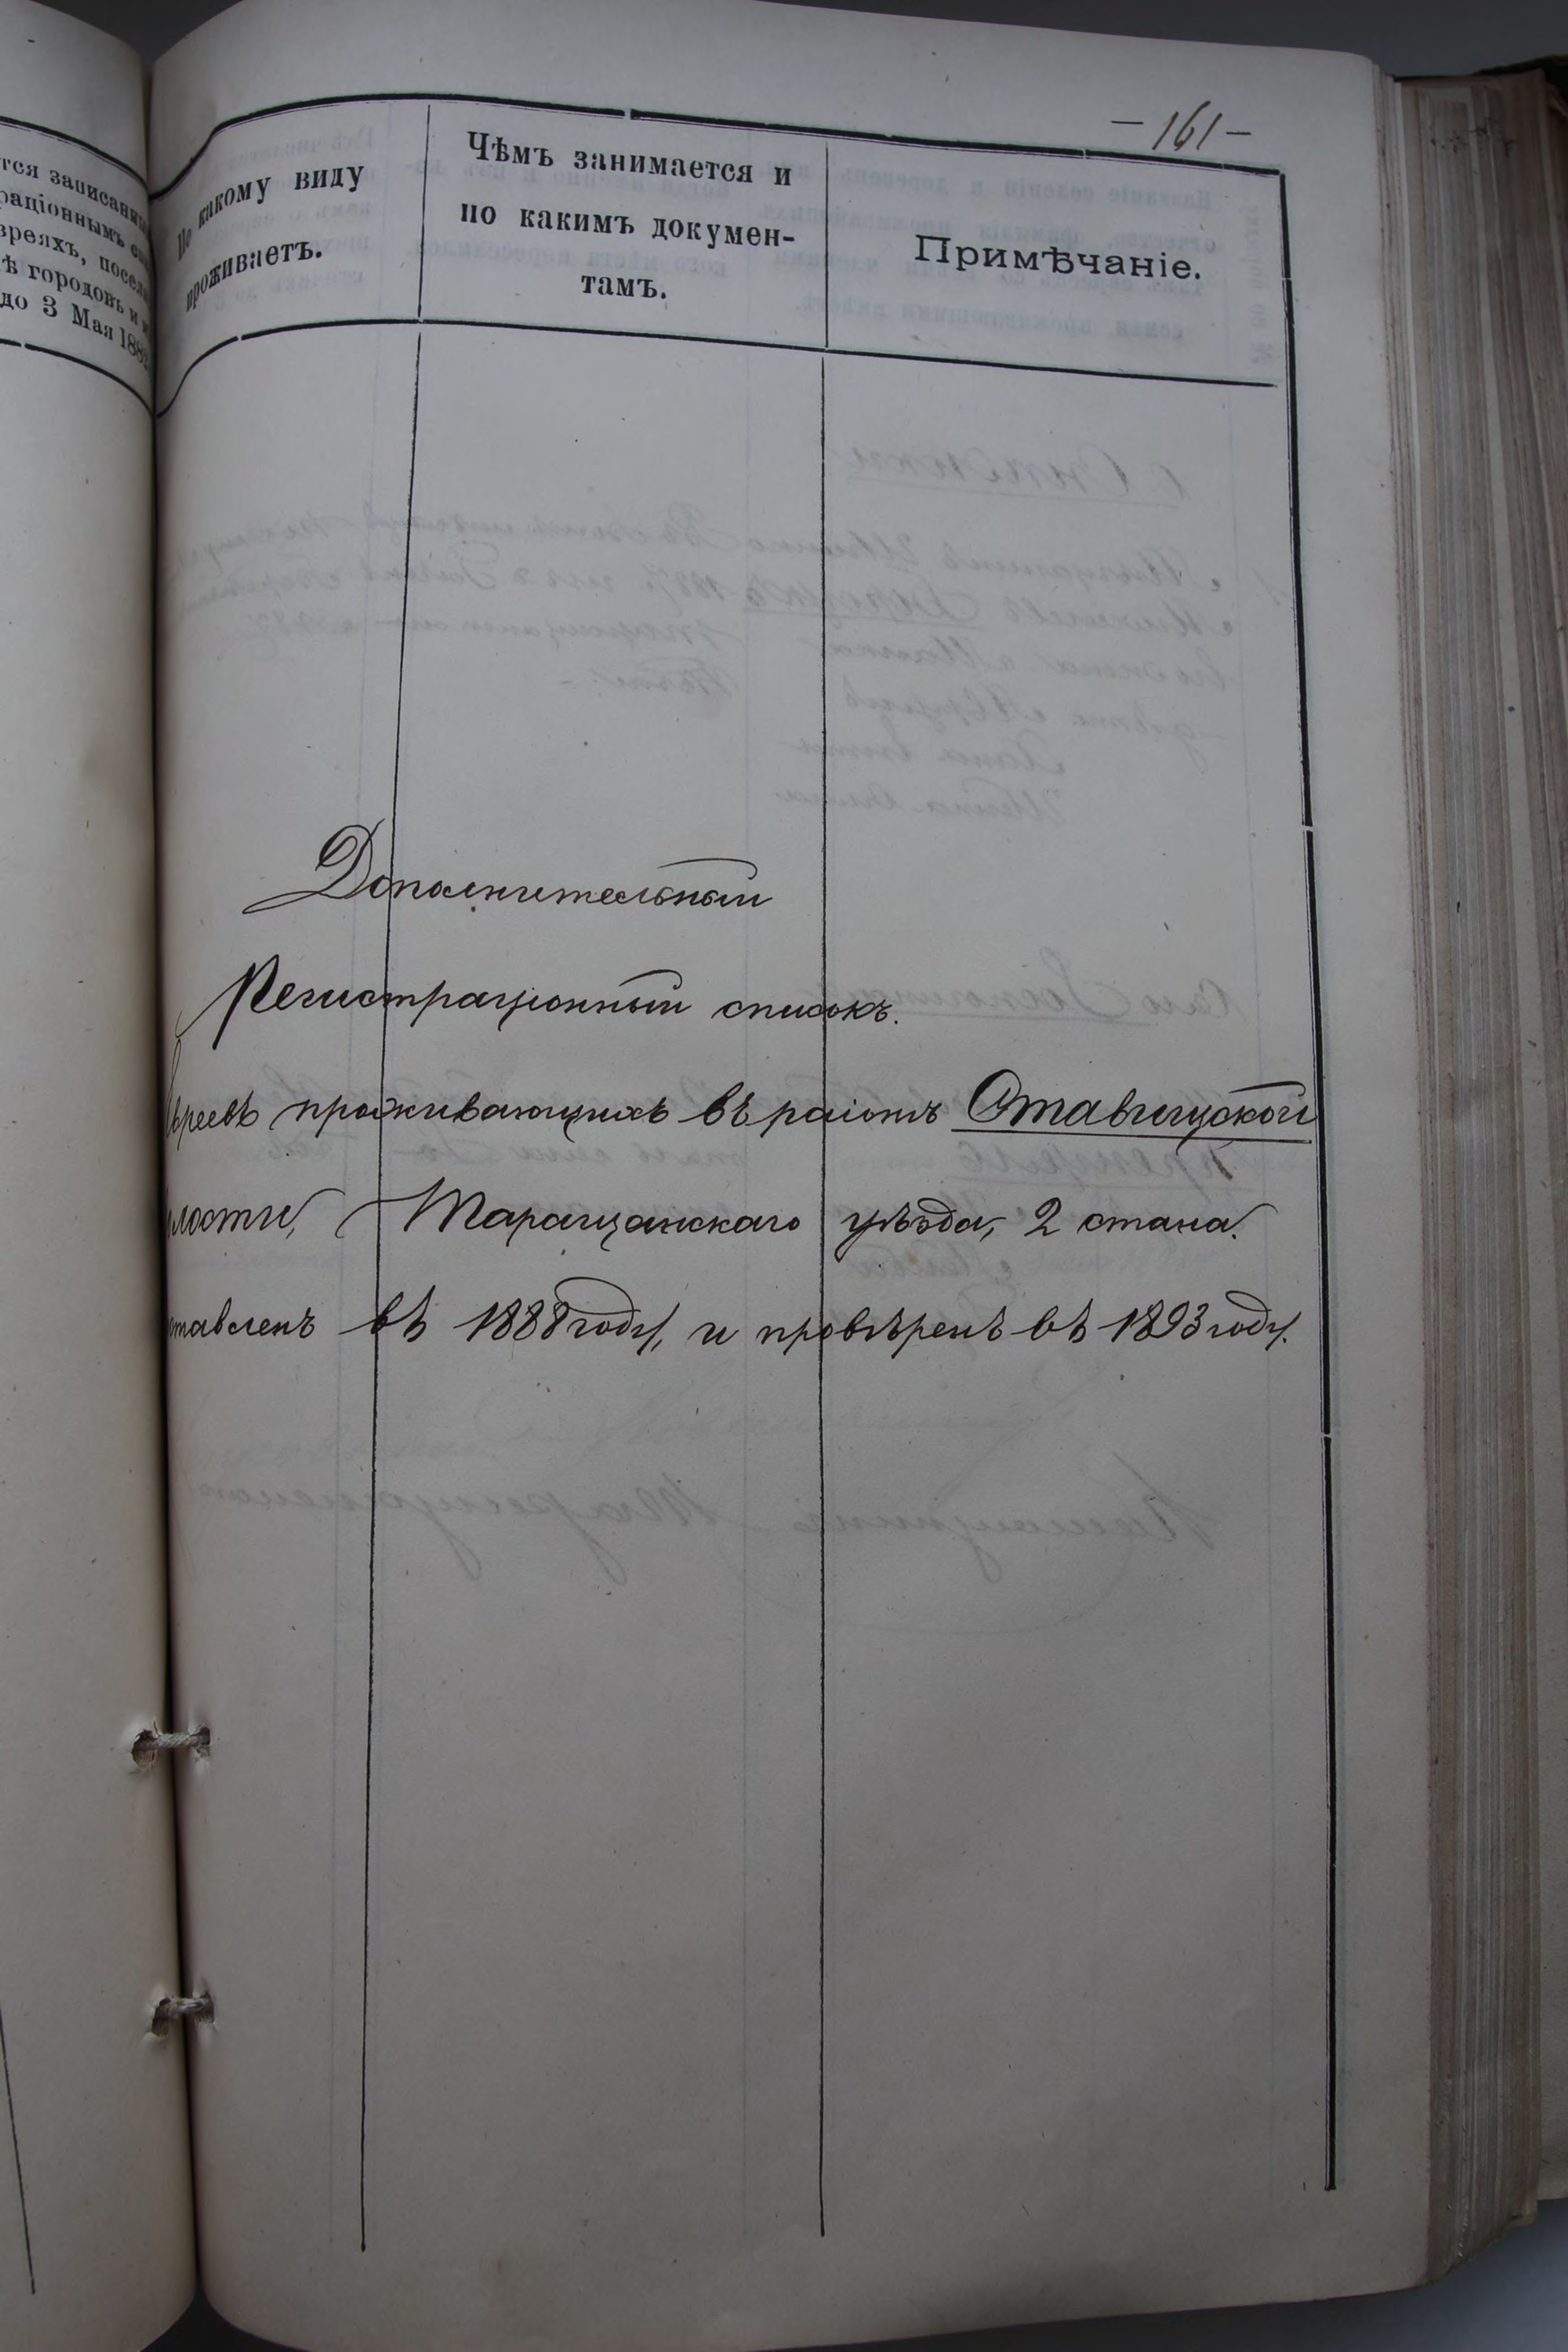 тся записанны
раціоннымъ
вреяхъ, посел
ѣ городовъ и
до 3 Мая 188
– 161 –
По какому виду
проживаетъ.
Чѣмъ занимается и
по какимъ докумен-
тамъ.
Примѣчаніе.
Дополнительный
Регистраціонный списокъ.
Евреевъ проживающихъ въ раіонѣ Ставищской
лости, Таращанскаго уѣзда, 2 стана.
ставленъ въ 1888 году, и провѣренъ въ 1893 году.